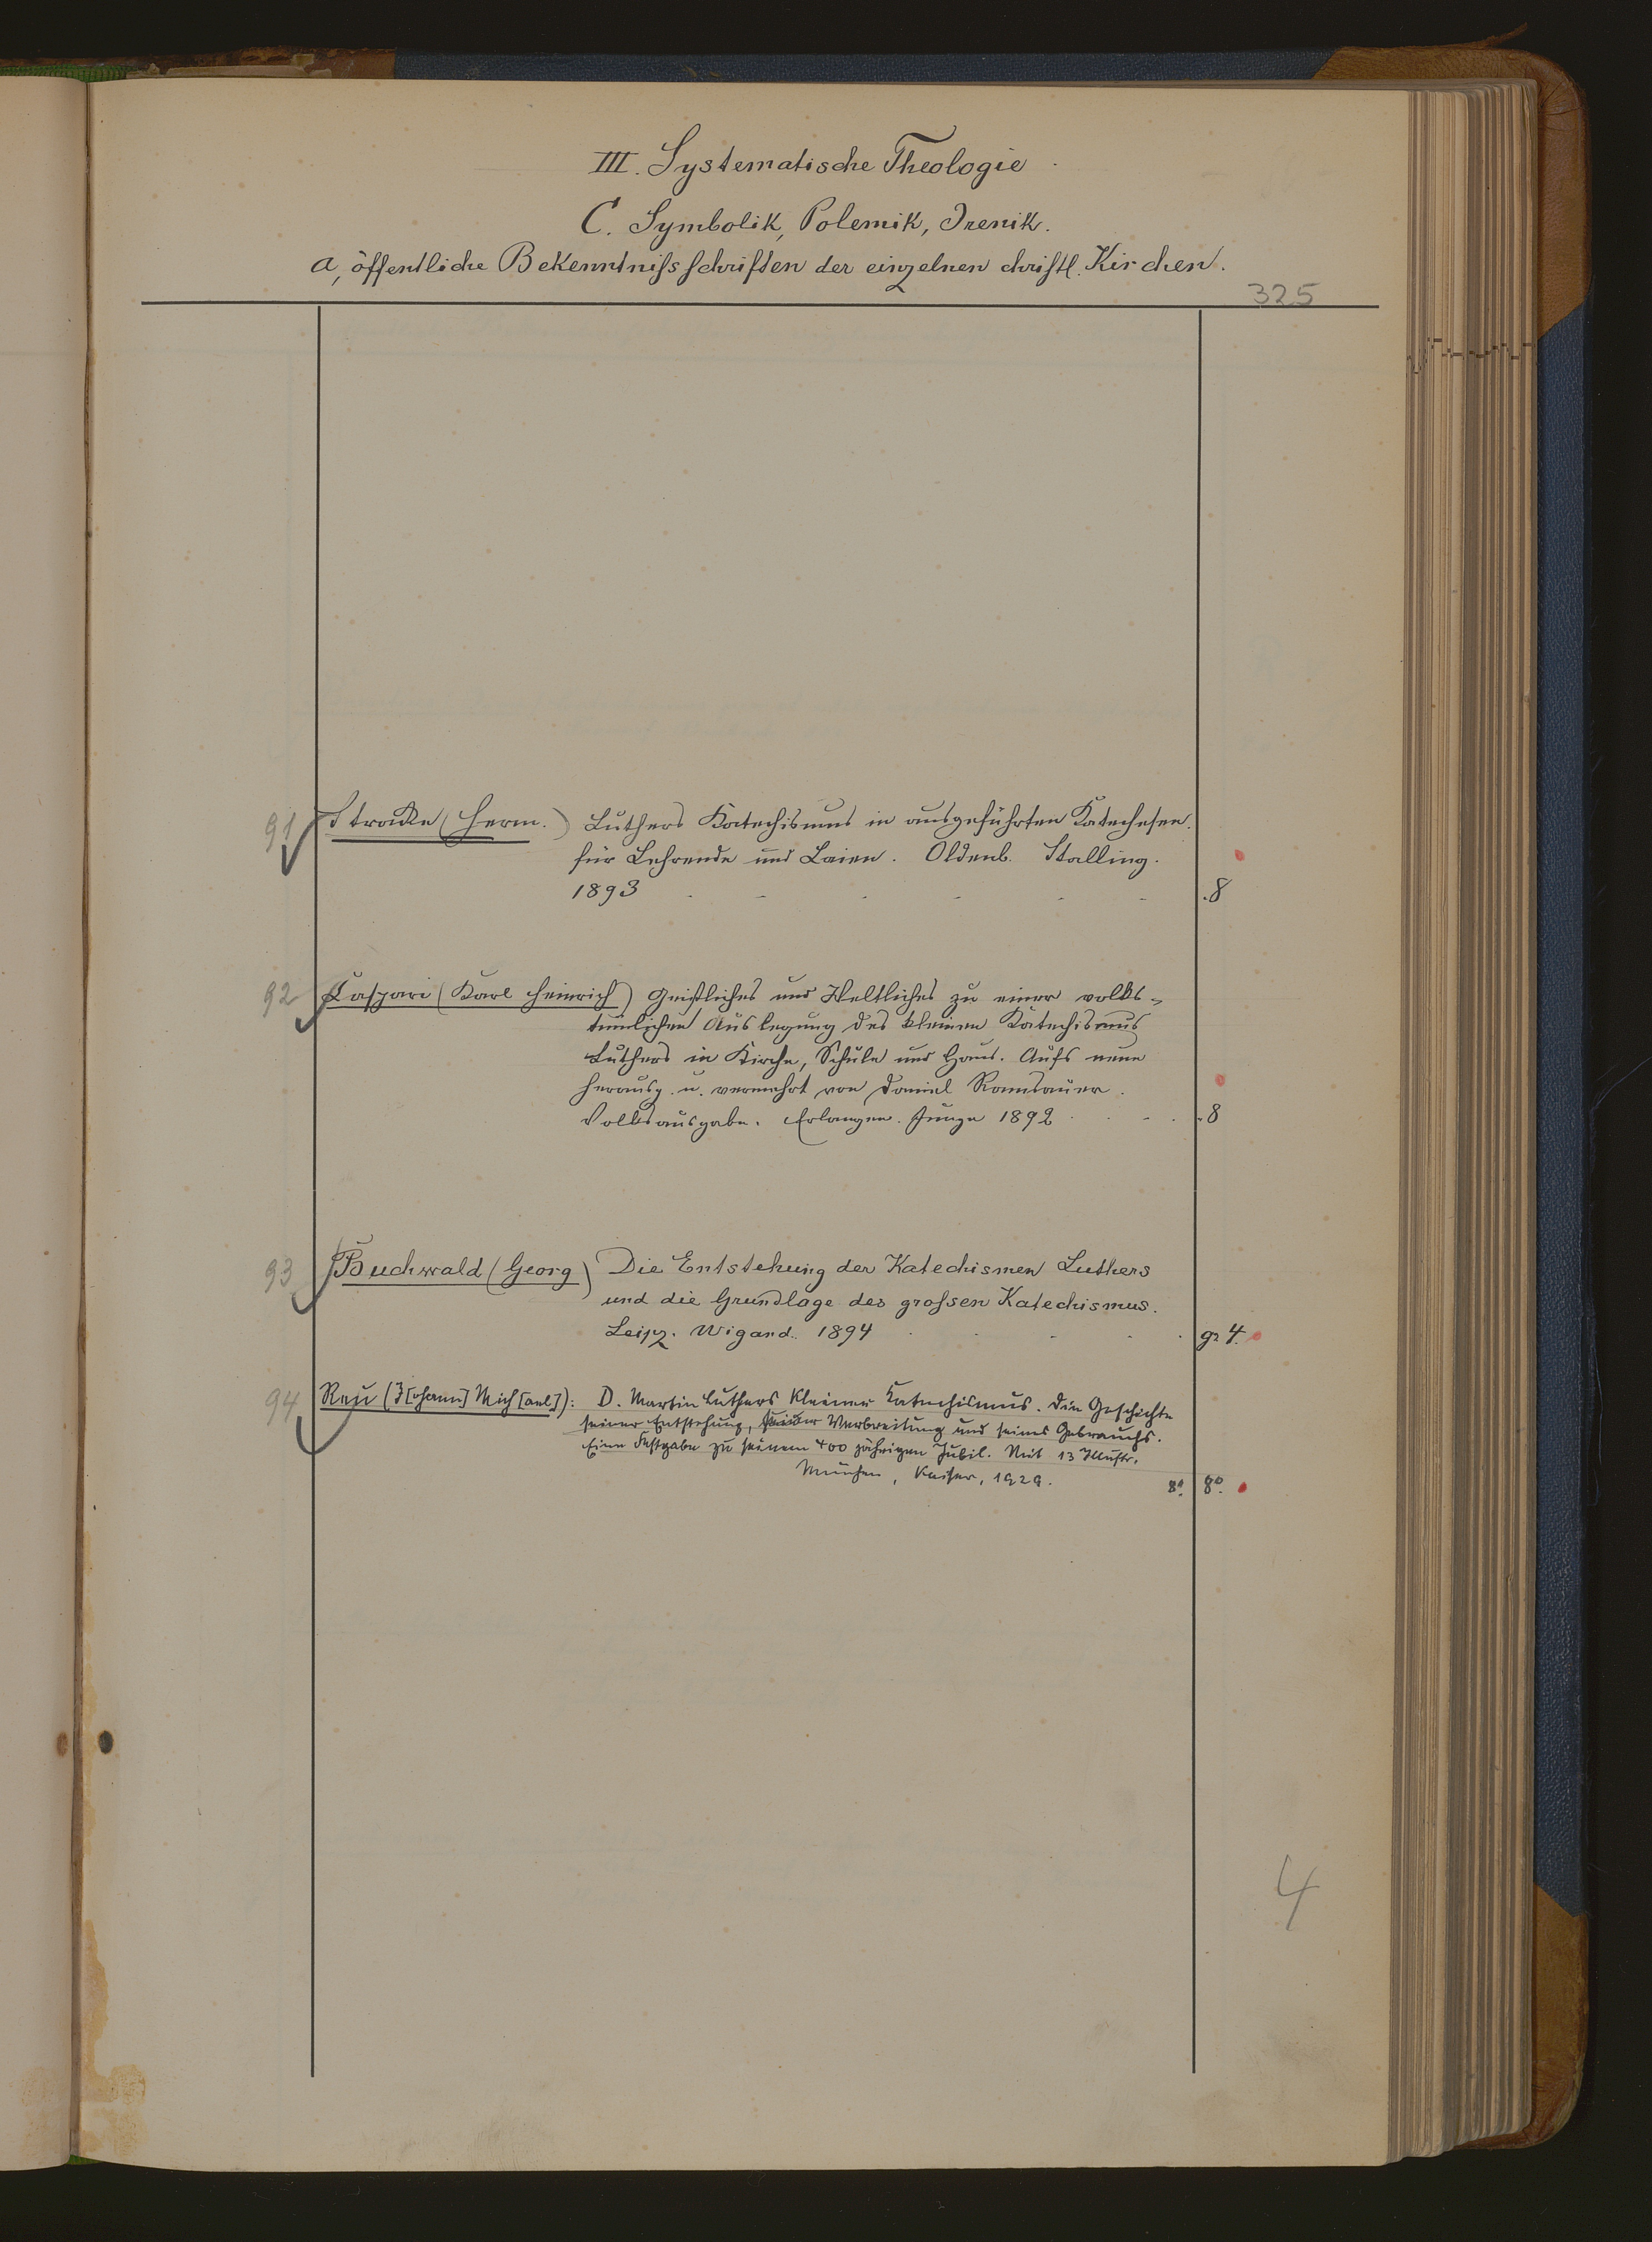 III. Systematische Theologie
C. Symbolik, Polemik, Irenik.
a, öffentliche Bekenntnißschriften der einzelnen christl. Kirchen.
325
91 Stracke (Herm.) Luthers Katechismus in ausgeführten Katechesen.
für Lehrende und Laien. Oldenb. Stalling.
1893 8
92 Caspari (Karl Heinrich) Geistliches und Weltliches zu einer volks-
tümlichen Auslegung des kleinen Katechismus
Luthers in Kirche, Schule und Haus. Aufs neue
herausg. u. vermehrt von Daniel Ramsauer.
Volksausgabe. Erlangen. Junge 1892 8
93 Buchwald (Georg) Die Entstehung der Katechismen Luthers
und die Grundlage des großen Katechismus.
Leipz. Wigand. 1894 gr 4.
94 Reu (J[ohann] Mich[ael]): D. Martin Luthers Kleiner Katechismus. Die Geschichte
seiner Entstehung, seiner Verbreitung und seines Gebrauchs.
Eine Festgabe zu seinem 400 jährigen Jubil. Mit 13 Illustr.
München, Kaiser, 1929. 8° 8°.
4